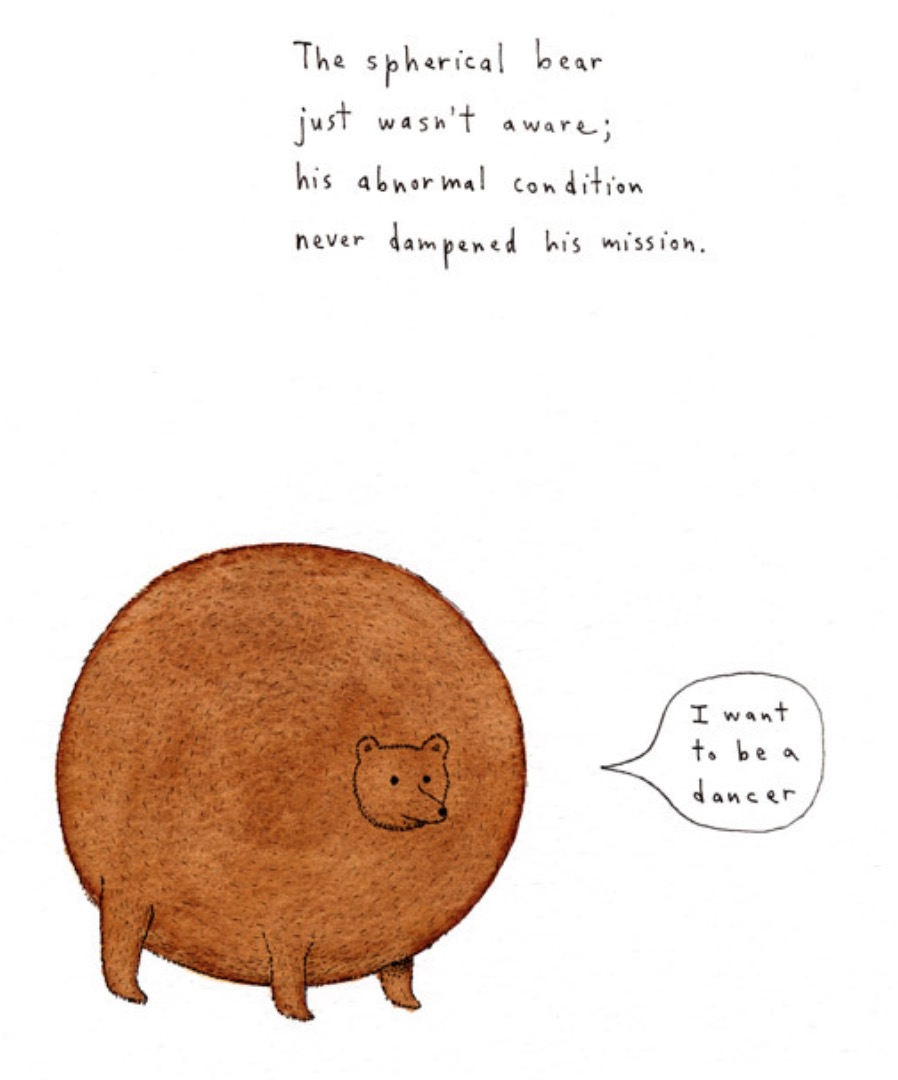 The spherical bear
just wasn't aware;
his abnormal condition
never dampened his mission.
I want
to be a
dancer